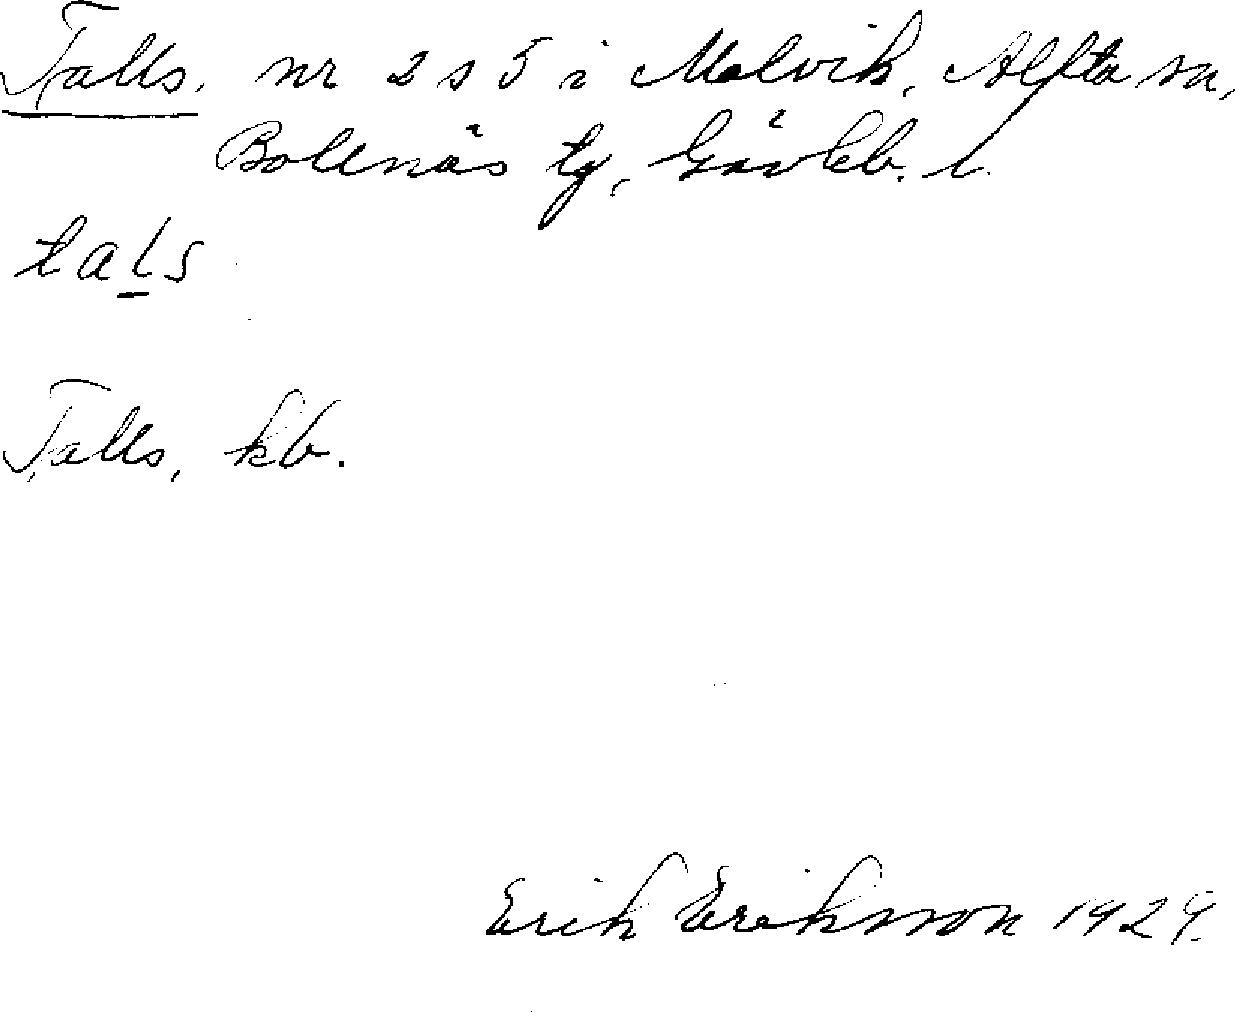 Talls. nr 2 s 5 i Malvik, Alfta sn,
Bollnäs tg, Gävleb. l.
tals
Talls, kb.
Erik Eriksson 1929.